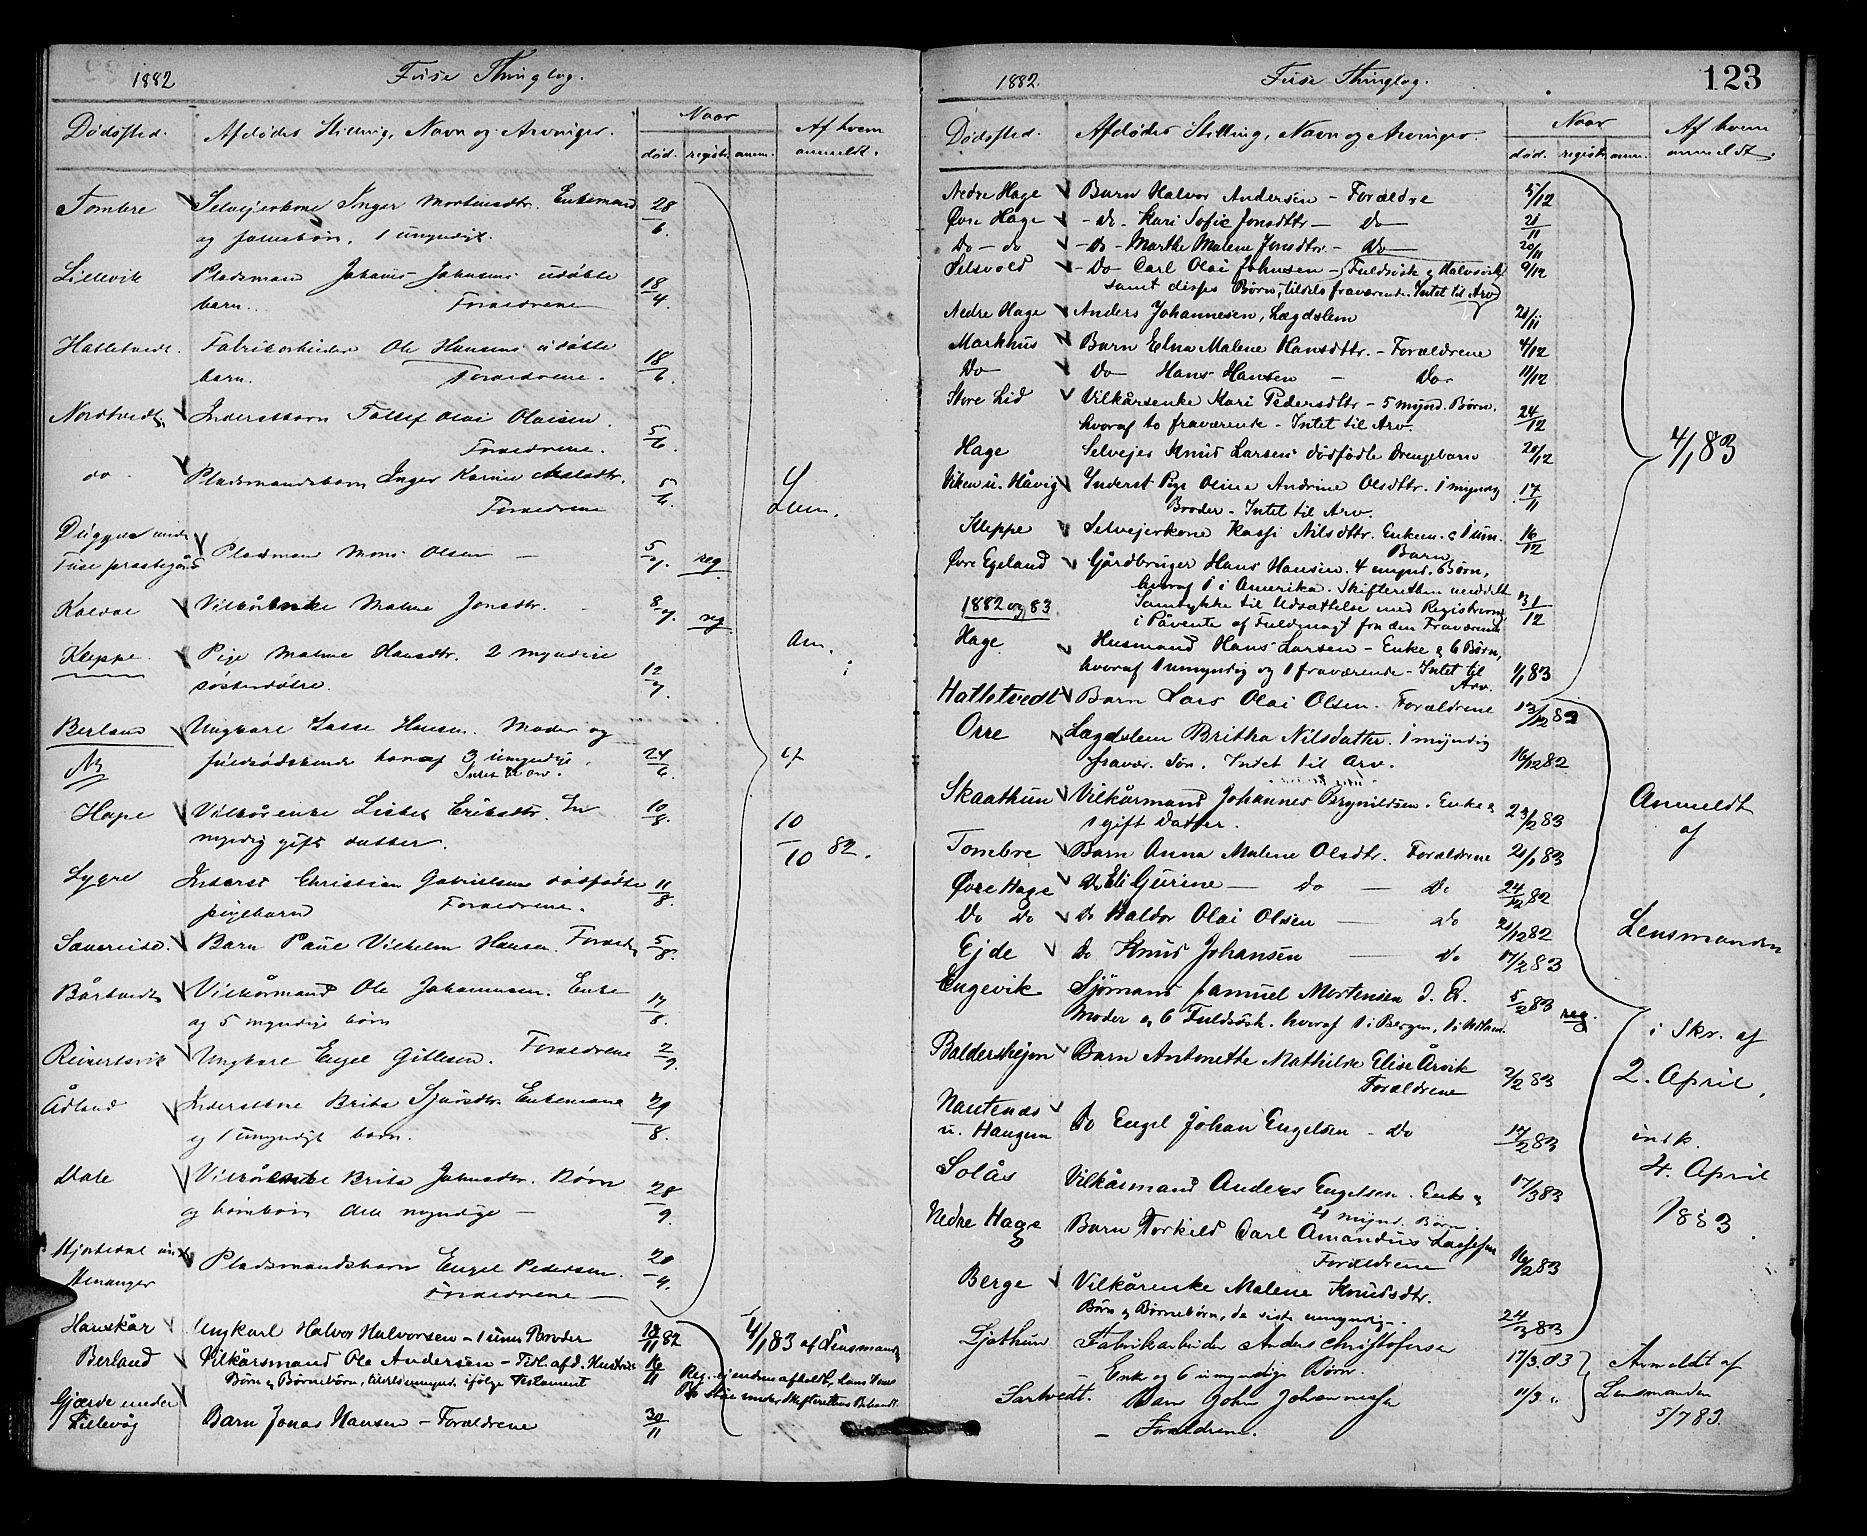 1882 Fuse Thinglag.
Dødssted. Afdødes Stilling, Navn og Arvinger. Naar Af hvem
død. registr. anm. anmeldt.
Tombre Selveierkone Inger Mortensdtr. Enkemand 28/6.
og børn, 1 umyndigt.
Lillevik Pladsmand Johannes udøbte 18/4
barn. Forældrene
Hatletvedt. Fabrikarbeider Ole Hansens udøbte 18/6.
barn. Forældrene.
Nordtvedt, Inderstbarn Tollef Olai Olaisen. 5/6.
Forældrene.
do Pladsmandsbarn Inger Karine 5/6.
Forældrene
Lem.
under Pladsman Mons Olsen — 5/7. reg.
Fuse præstegård
Vilkårsenke Malene Jonsdtr. 8/7. reg.
Kleppe. Pige Malene Hansdtr. 2 myndige 12/7. an.
søsterdøtre.
Berland Ungkarl Lasse Hansen. Moder og
fuldsødskende hvoraf 3 umyndige. 24/6. af
Intet til Arv.
Hage Vilkårsenke Lisbet Eriksdtr. En 10/8.
myndig gift datter. 10/10 82.
Lygre Inderst Christian Gabrielsens dødfødte 11/8.
pigebarn Forældrene.
Sævereide. Barn Paul Vilhelm Hansen. Foræld. 5/8.
Bårtvedt Vilkårmand Ole Johannesen. Enke 17/8.
og 5 myndige børn
Reinertsvik Ungkarl Engel Gitlesen. Forældrene 2/9.
Ådland Inderstkone Brita Sjursdtr. Enkemand 29/8.
og 1 umyndigt barn.
Dale Vilkårsenke Brita Johnsdtr. Børn 28/9.
og børnebørn alle myndige —
Hjortedal Pladsmandsbarn Engel Pedersen. 20/9.
Henanger Forældrene —
Hanskår Ungkarl Halvor Halvorsen – 1 um. Broder 18/11 82 4/1 83 af Lensmand
Berland Vilkårsmand Ole Andersen – Hustrue 16/11
Børn og Børnebørn, ifølge Testament
Gjærde under
Lillevåg Barn Jonas Hansen – Forældrene 30/11
1882. Fuse Thinglag. 123
Dødssted. Afdødes Stilling, Navn og Arvinger. Naar Af hvem
død. registr. anm. anmeldt.
Nedre Hage Barn Halvor Andersen – Forældre 5/12
Øvre Hage – do – Kari Sofie Jonsdttr – do 21/11
Do – do – do – Marthe Malene Jonsdtr. – do 20/11
Selsvold – Do – Carl Olai Johnsen – Fuldsøsk. & Halvsøsk. 9/12
samt disses Børn, tildels fraværende. Intet til Arv
Nedre Hage Anders Johannesen, Lægdslem 21/11
Markhus Barn Elna Malene Hansdttr. – Forældrene 4/12
Do Do Hans Hansen – Do 11/12
Store Lid Vilkårsenke Kari Pedersdttr – 5 mynd. Børn. 24/12
hvoraf to fraværende – Intet til Arv. 4/1 83
Hage Selvejer Knud Larsens dødfødte Drengebarn 20/12
Viken u. Håvig Inderst Pige Oline Andrine Olsdttr. 1 myndig 17/11
Broder – Intet til Arv.
Kleppe Selvejerkone Nilsdttr. Enkem. & 1 um. 16/12
Barn
Øvre Egeland Gårdbruger Hans Hansen. 4 mynd. Børn,
hvoraf 1 i Amerika. Skifteretten meddelt
1882 og 83 Samtykke til Udsættelse med Registrering 31/12
i Påvente af Fuldmagt fra den Fraværende
Hage Husmand Hans Larsen – Enke & 6 Børn,
hvoraf 1 umyndig og 1 fraværende – Intet til 1/1 83
Arv.
Hatletvedt Barn Lars Olai Olsen. Forældrene 13/12 82
Orre Lægdslem Britha Nilsdatter. 1 myndig
fravær. Søn. Intet til Arv. 16/12 82
Skaathun Vilkårmand Johannes Brynildsen. Enke & 23/2 83 Anmeldt
1 gift datter. af
Tombre Barn Anna Malene Olsdtr. Forældrene 21/1 83
Øvre Hage do Eli Gjurine — do — do 24/12 82
Do Do do Haldor Olai Olsen — do 21/12 82 Lensmanden
Ejde do Knud Johansen — do 17/2 83
Engevik Sjømand Samuel Mortensen 5/2 83 reg.
Moder & 6 Fuldsøsk. hvoraf 1 i Bergen, i Skr. af
Baldersheim Barn Antonette Mathilde Elise Årvik 2/2 83 2. April,
Forældrene
Nautenæs
u. Haugen do Engel Johan Engelsen – do 17/2 83 indk.
Solås Vilkårsmand Anders Engelsen. Enke & 17/3 83 4. April
4 mynd. Børn.
Nedre Hage Barn Torkild Carl Amandus Lassesen 16/2 83 1883.
Forældrene
Berge Vilkårenke Malene Knudsdtr.
Børn & Børnebørn, de siste umyndige. 24/3 83
Ljothun Fabrikarbeider Anders Christofersen 17/3. 83 Anmeldt af
Enke og 6 umyndige Børn. Lensmanden
Sartvedt. Barn John Johannessen 11/3. „ 5/7 83.
— Forældrene.